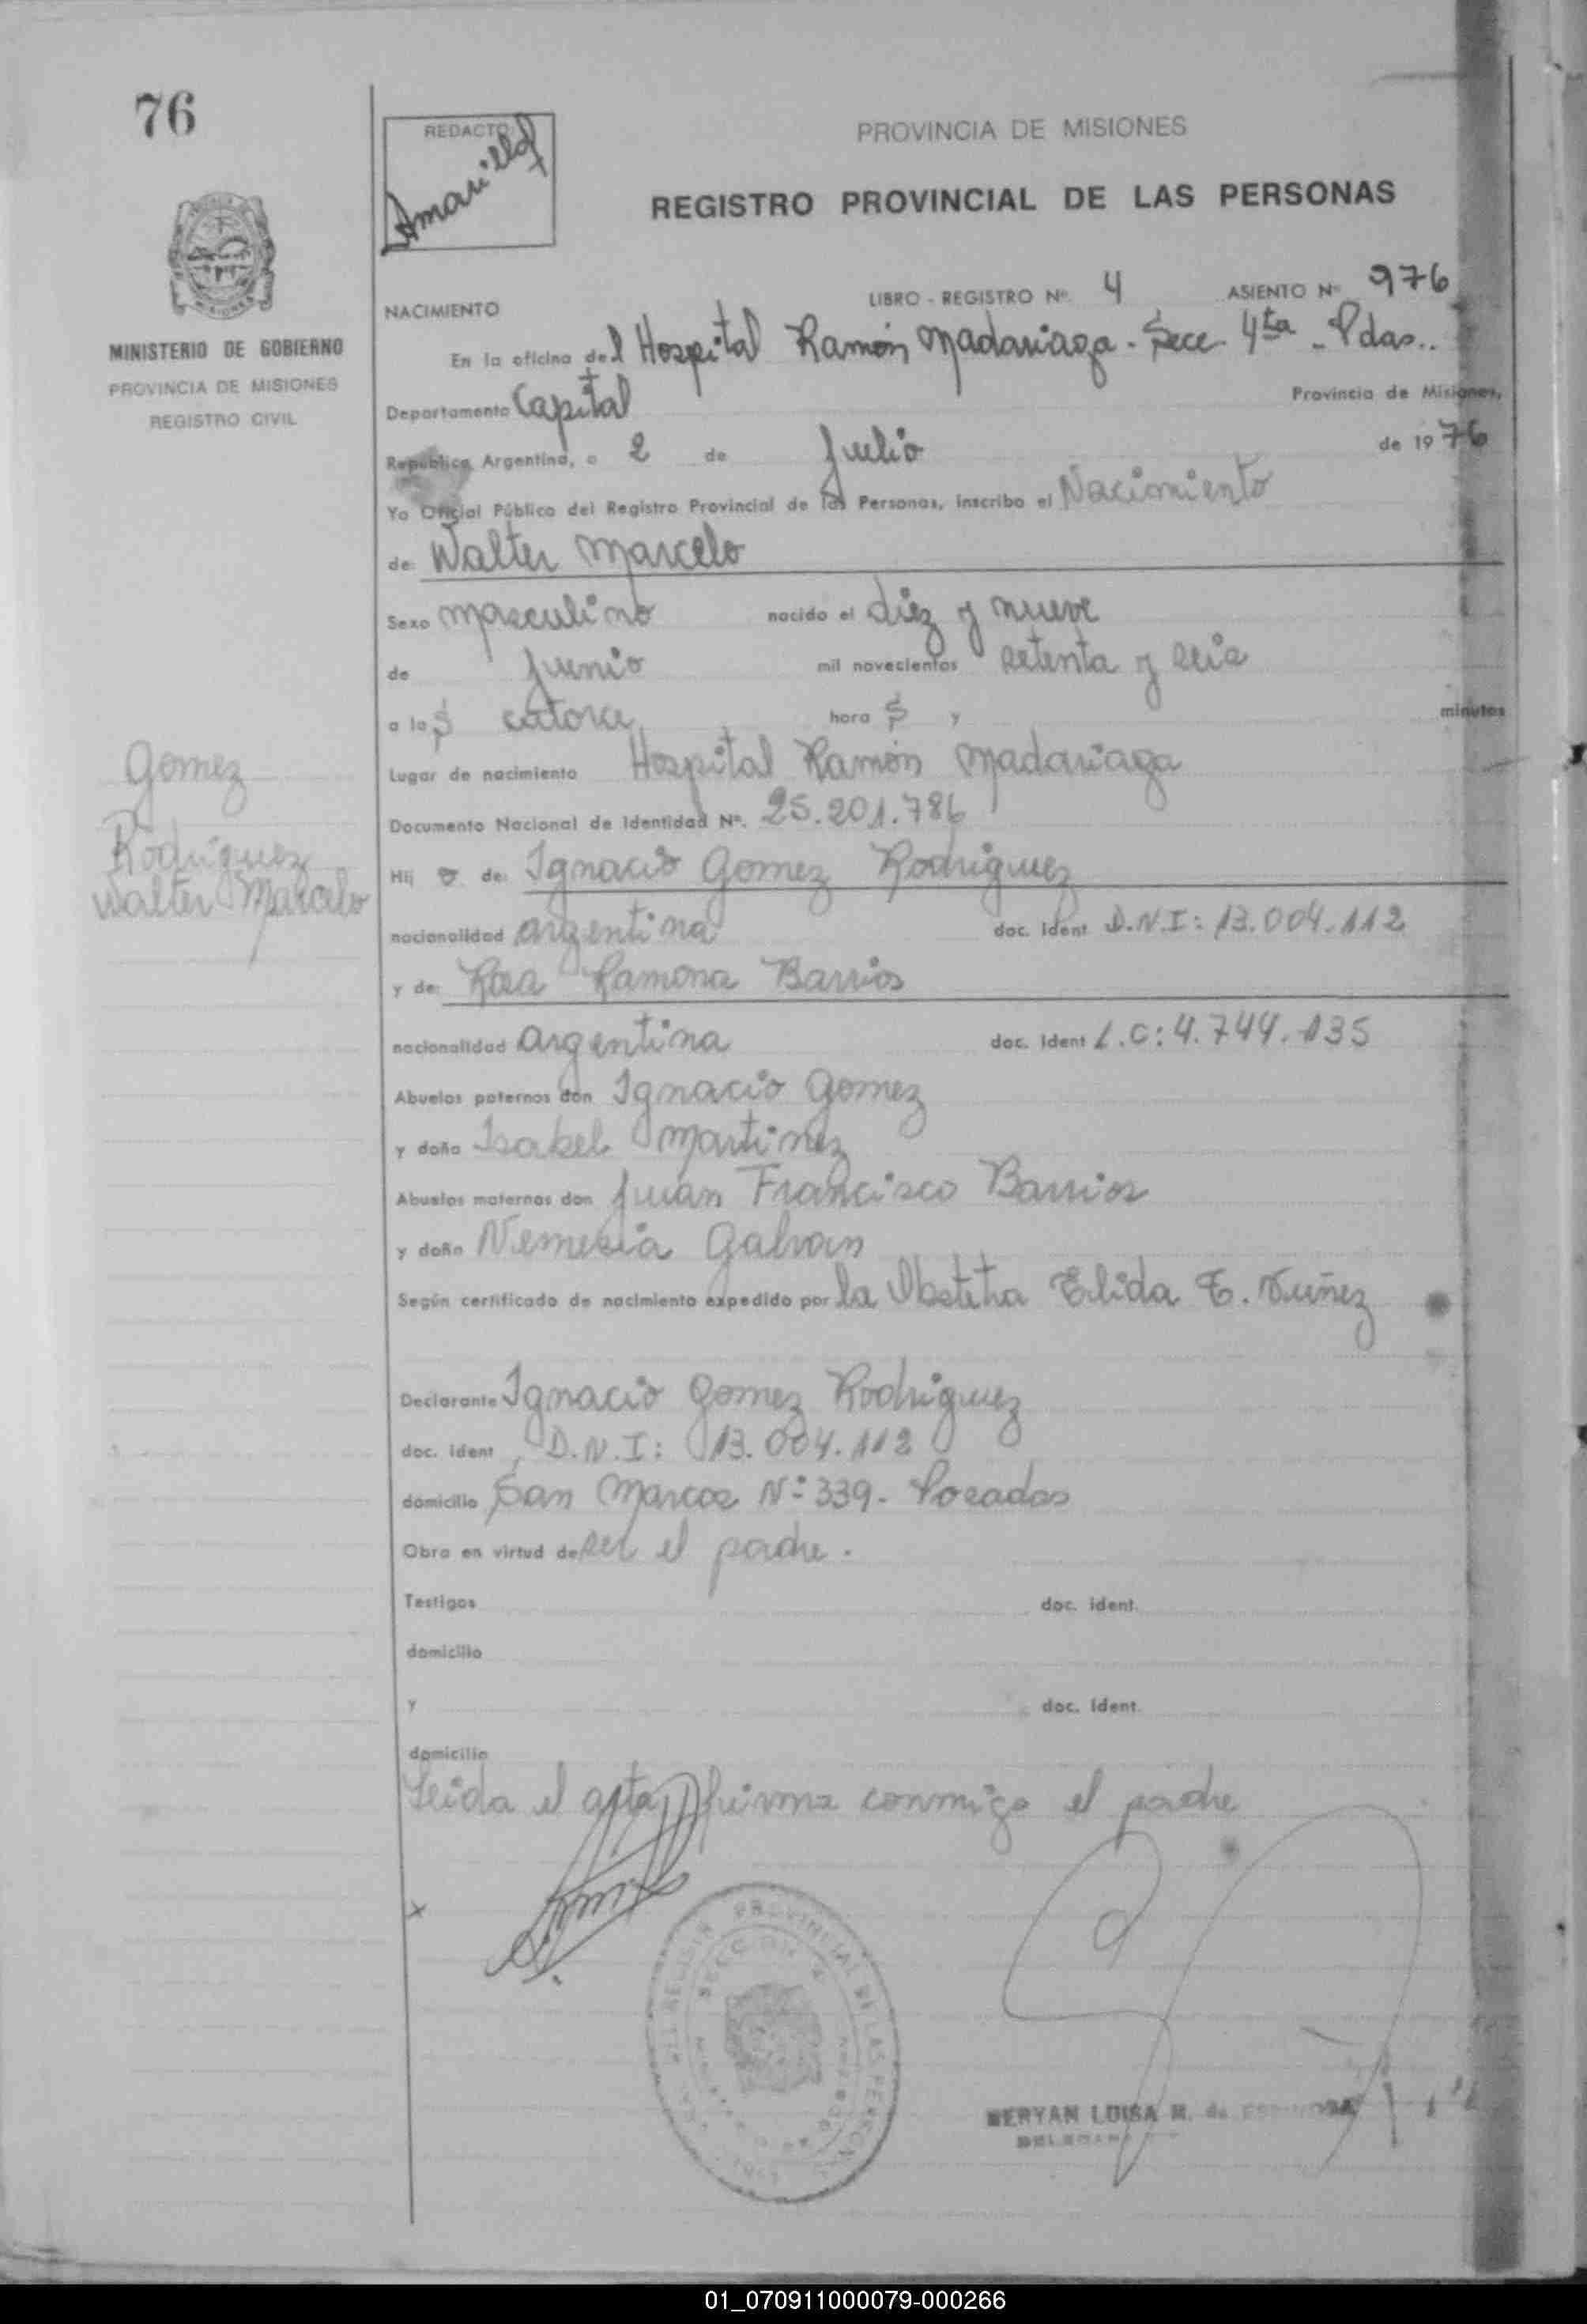 76
REDACTO:
Amarilla
PROVINCIA DE MISIONES
REGISTRO PROVINCIAL DE LAS PERSONAS
MINISTERIO DE GOBIERNO
PROVINCIA DE MISIONES
REGISTRO CIVIL
NACIMIENTO
LIBRO - REGISTRO Nº. 4 ASIENTO Nº 976
En la oficina del Hospital Ramón Madariaga - Secc. 4ta - Pdas..
Departamento Capital Provincia de Misiones,
República Argentina, a 2 de Julio de 1976
Yo Oficial Público del Registro Provincial de las Personas, inscribo el Nacimiento
de: Walter Marcelo
Sexo masculino nacido el diez y nueve
de Junio mil novecientos setenta y seis
a las catorce horas y minutos
Lugar de nacimiento Hospital Ramón Madariaga
Documento Nacional de Identidad Nº. 25.201.786
Hijo de: Ignacio Gomez Rodriguez
nacionalidad argentina doc. ident D.N.I: 13.004.112
y de: Rosa Ramona Barrios
nacionalidad argentina doc. ident L.C: 4.744.135
Abuelos paternos don Ignacio Gomez
y doña Isabel Martinez
Abuelos maternos don Juan Francisco Barrios
y doña Nemesia Galvan
Según certificado de nacimiento expedido por la Obstetra Elida E. Nuñez
Declarante Ignacio Gomez Rodriguez
doc. ident D.N.I: 13.004.112
domicilio San Marcos Nº 339 - Posadas
Obra en virtud de ser el padre.
Testigos doc. ident.
domicilio
y doc. ident.
domicilio
Leida el acta, firma conmigo el padre
Gomez
Rodriguez
Walter Marcelo
REGISTRO PROVINCIAL DE LAS PERSONAS
SECCION 4
LUISA M. de
01_070911000079-000266